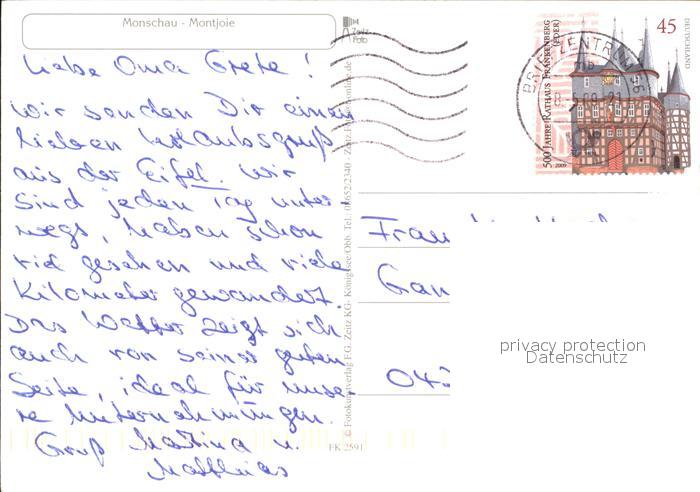 Monschau - Montjoie
Liebe Oma Grete!
Wir senden Dir einen
lieben Urlaubsgruß
aus der Eifel. Wir
sind jeden Tag unter-
wegs, haben schon
viel gesehen und viele
Kilometer gewandert.
Das Wetter zeigt sich
auch von seiner guten
Seite, ideal für unse-
re Unternehmungen.
Gruß Martina u.
Matthias
Zeitz
Foto
© Fotokunstverlag FG. Zeitz KG· Königssee/Obb. Tel.: 08652/2340
FK 2591
BRIEFZENTRUM
500 JAHRE RATHAUS FRANKENBERG
(EDER)
2009
45
DEUTSCHLAND
Frau
Gan
04
privacy protection
Datenschutz